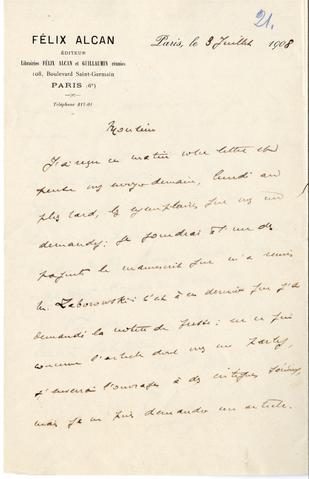 21.
FÉLIX ALCAN
ÉDITEUR
Librairies FÉLIX ALCAN et GUILLAUMIN réunies
108, Boulevard Saint-Germain
PARIS (6e)
Téléphone 817-01
Paris, le 3 Juillet 1908
Monsieur
J'ai reçu ce matin votre lettre et
pense vous envoyer demain, lundi au
plus tard, les exemplaires que vous me
demandez; je joindrai à un des
paquets le manuscrit que m'a remis
M. Zaborowski: c'est à ce dernier que j'ai
demandé la notice de presse: en ce qui
concerne l'article dont vous me parlez,
j'enverrai l'ouvrage à des critiques sérieux,
mais je ne puis demander un article.